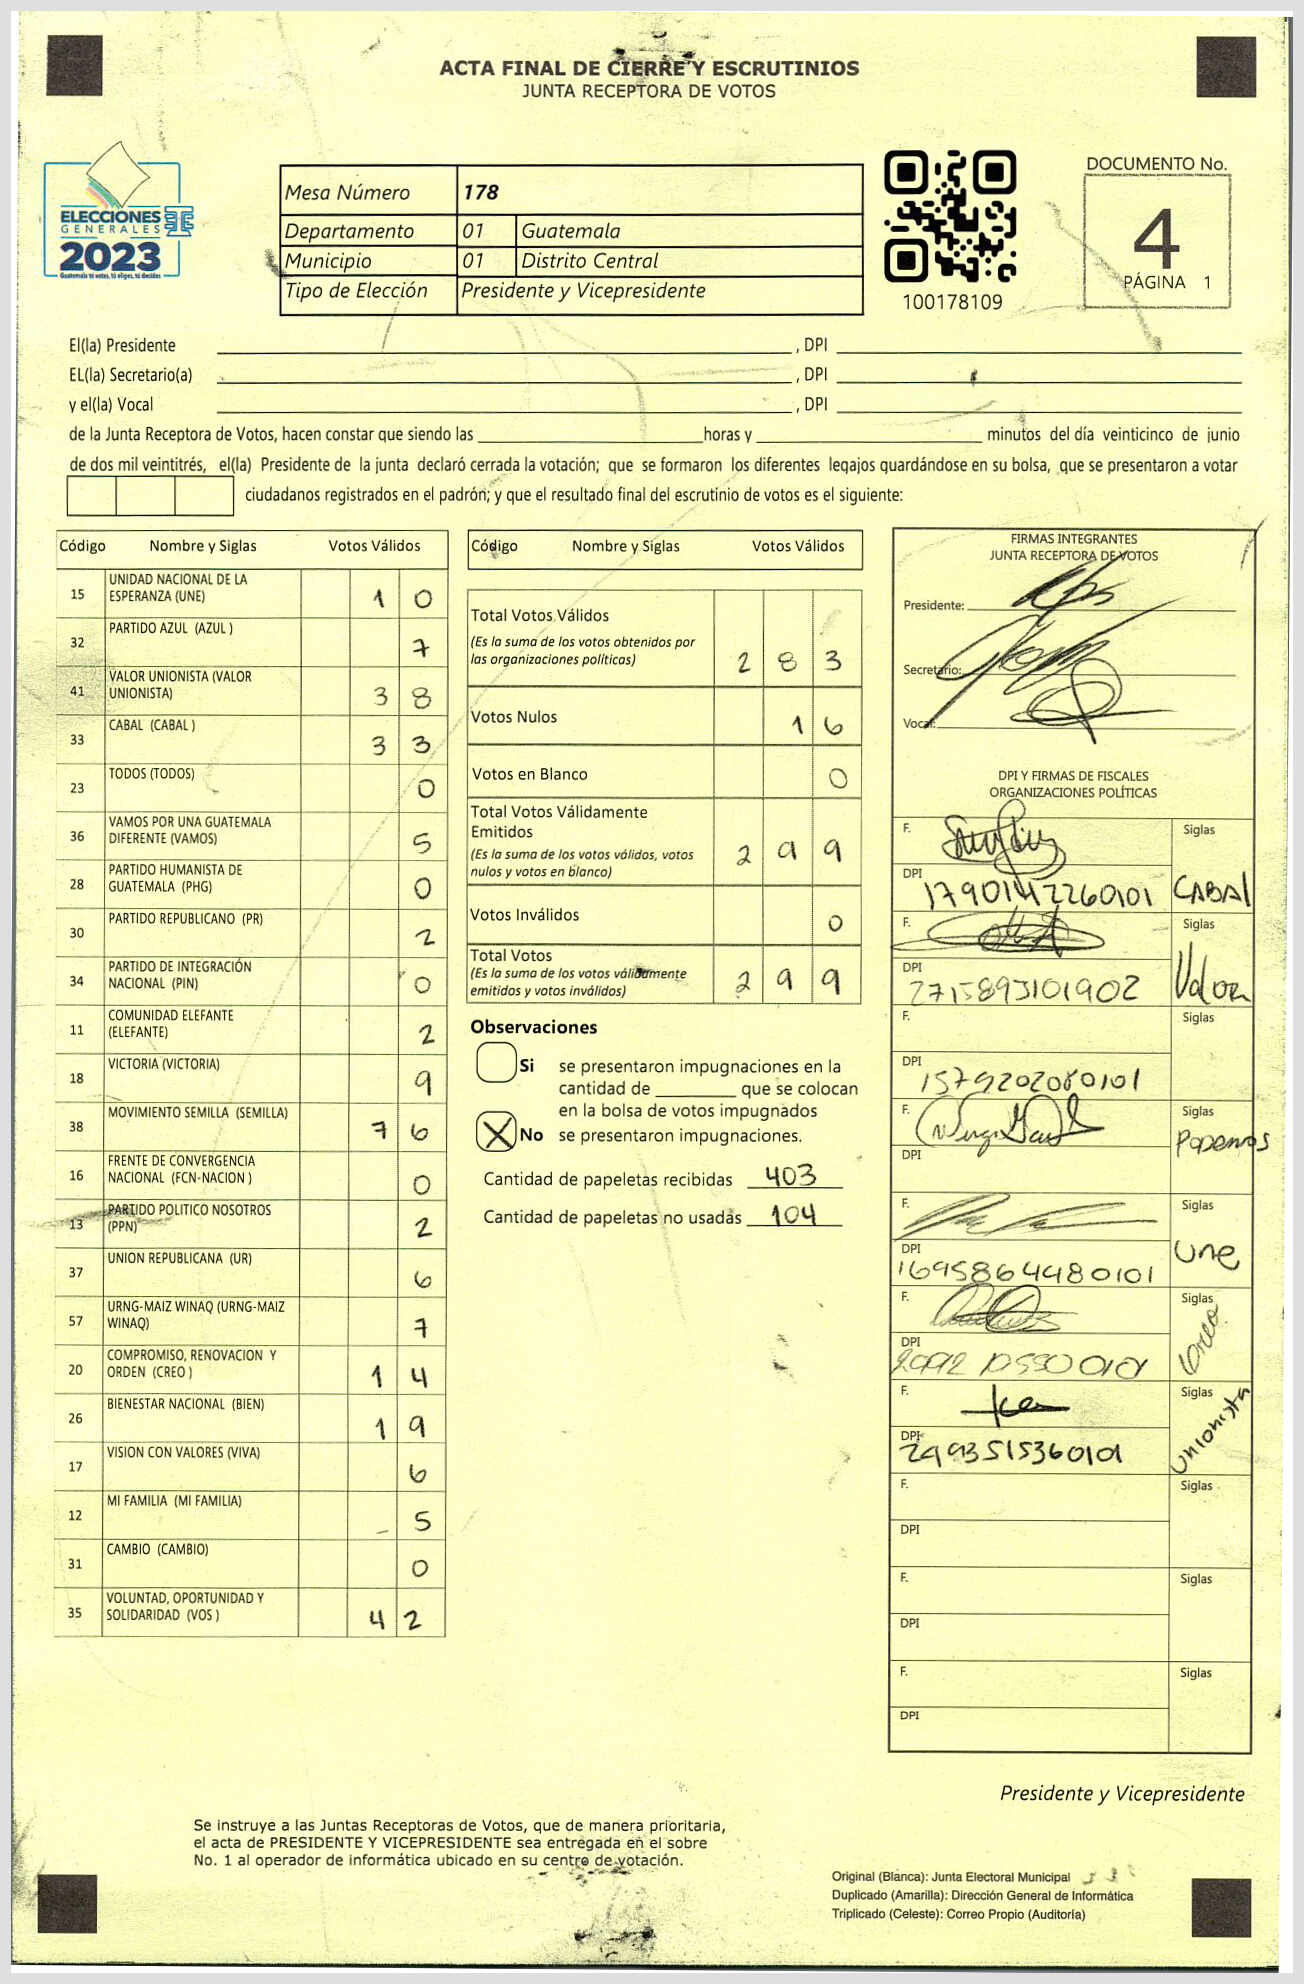 ACTA FINAL DE CIERRE Y ESCRUTINIOS
JUNTA RECEPTORA DE VOTOS
ELECCIONES
GENERALES
2023
Guatemala tú votas, tú eliges, tú decides
Mesa Número 178
Departamento 01 Guatemala
Municipio 01 Distrito Central
Tipo de Elección Presidente y Vicepresidente
100178109
DOCUMENTO No.
4
PÁGINA 1
El(la) Presidente , DPI
EL(la) Secretario(a) , DPI
y el(la) Vocal , DPI
de la Junta Receptora de Votos, hacen constar que siendo las horas y minutos del día veinticinco de junio
de dos mil veintitrés, el(la) Presidente de la junta declaró cerrada la votación; que se formaron los diferentes legajos guardándose en su bolsa, que se presentaron a votar
ciudadanos registrados en el padrón; y que el resultado final del escrutinio de votos es el siguiente:
Código Nombre y Siglas Votos Válidos
15 UNIDAD NACIONAL DE LA ESPERANZA (UNE) 1 0
32 PARTIDO AZUL (AZUL ) 7
41 VALOR UNIONISTA (VALOR UNIONISTA) 3 8
33 CABAL (CABAL ) 3 3
23 TODOS (TODOS) 0
36 VAMOS POR UNA GUATEMALA DIFERENTE (VAMOS) 5
28 PARTIDO HUMANISTA DE GUATEMALA (PHG) 0
30 PARTIDO REPUBLICANO (PR) 2
34 PARTIDO DE INTEGRACIÓN NACIONAL (PIN) 0
11 COMUNIDAD ELEFANTE (ELEFANTE) 2
18 VICTORIA (VICTORIA) 9
38 MOVIMIENTO SEMILLA (SEMILLA) 7 6
16 FRENTE DE CONVERGENCIA NACIONAL (FCN-NACION ) 0
13 PARTIDO POLITICO NOSOTROS (PPN) 2
37 UNION REPUBLICANA (UR) 6
57 URNG-MAIZ WINAQ (URNG-MAIZ WINAQ) 7
20 COMPROMISO, RENOVACION Y ORDEN (CREO ) 1 4
26 BIENESTAR NACIONAL (BIEN) 1 9
17 VISION CON VALORES (VIVA) 6
12 MI FAMILIA (MI FAMILIA) 5
31 CAMBIO (CAMBIO) 0
35 VOLUNTAD, OPORTUNIDAD Y SOLIDARIDAD (VOS ) 4 2
Código Nombre y Siglas Votos Válidos
Total Votos Válidos
(Es la suma de los votos obtenidos por
las organizaciones políticas) 2 8 3
Votos Nulos 1 6
Votos en Blanco 0
Total Votos Válidamente
Emitidos
(Es la suma de los votos válidos, votos
nulos y votos en blanco) 2 9 9
Votos Inválidos 0
Total Votos
(Es la suma de los votos válidamente
emitidos y votos inválidos) 2 9 9
Observaciones
Si se presentaron impugnaciones en la
cantidad de que se colocan
en la bolsa de votos impugnados
X No se presentaron impugnaciones.
Cantidad de papeletas recibidas 403
Cantidad de papeletas no usadas 104
FIRMAS INTEGRANTES
JUNTA RECEPTORA DE VOTOS
Presidente:
Secretario:
Vocal:
DPI Y FIRMAS DE FISCALES
ORGANIZACIONES POLÍTICAS
F. Siglas
DPI 1790147260101 CABAL
F. Siglas
DPI Valor
F. Siglas
DPI 1579202080101
F. Siglas
DPI Podemos
F. Siglas
DPI 1695864480101 Une
F. Siglas
DPI Creo
F. Siglas
DPI 2993515360101 Unionista
F. Siglas
DPI
F. Siglas
DPI
F. Siglas
DPI
Presidente y Vicepresidente
Se instruye a las Juntas Receptoras de Votos, que de manera prioritaria,
el acta de PRESIDENTE Y VICEPRESIDENTE sea entregada en el sobre
No. 1 al operador de informática ubicado en su centro de votación.
Original (Blanca): Junta Electoral Municipal
Duplicado (Amarilla): Dirección General de Informática
Triplicado (Celeste): Correo Propio (Auditoría)